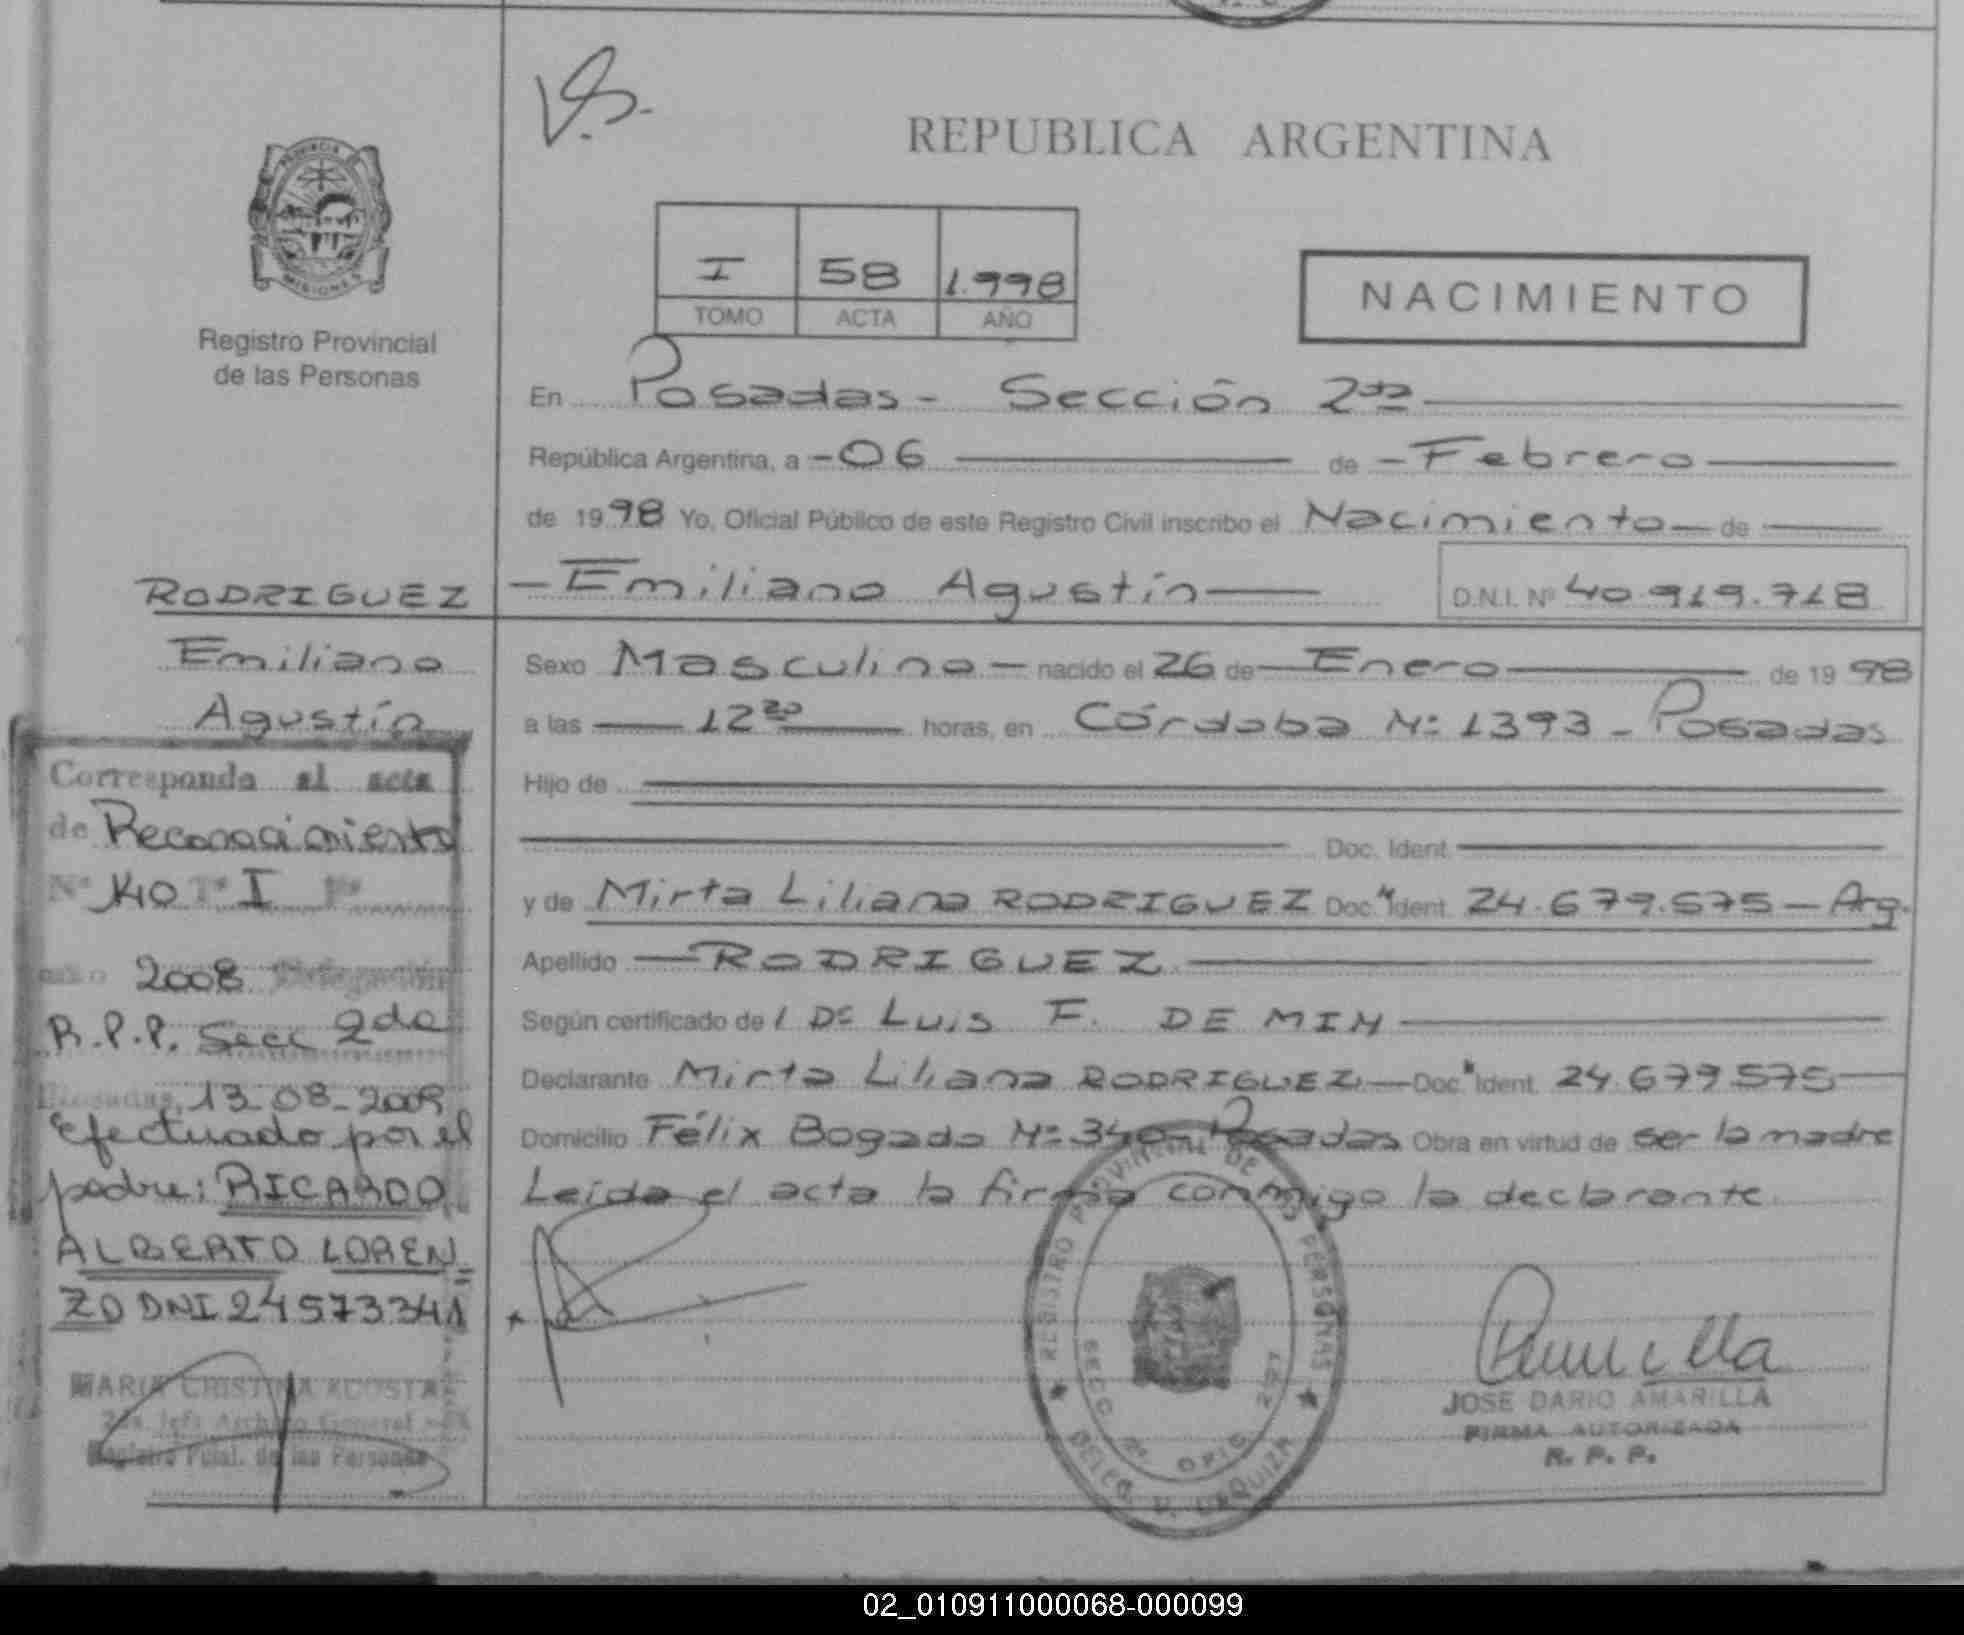 V.S.
REPUBLICA ARGENTINA
PROVINCIA DE
MISIONES
Registro Provincial
de las Personas
I 58 1.998
TOMO ACTA AÑO
NACIMIENTO
En Posadas - Sección 2da
República Argentina, a - 06 de - Febrero
de 1998 Yo, Oficial Público de este Registro Civil inscribo el Nacimiento de
- Emiliano Agustín D.N.I. Nº 40.919.718
Sexo Masculino - nacido el 26 de Enero de 1998
a las 12 20 horas, en Córdoba Nº 1393 - Posadas
Hijo de
Doc. Ident.
y de Mirta Liliana RODRIGUEZ Doc. Ident. 24.679.575 - Arg.
Apellido RODRIGUEZ
Según certificado de / Dr Luis F. DE MIN
Declarante Mirta Liliana RODRIGUEZ - Doc. Ident. 24.679.575
Domicilio Félix Bogado Nº 340 - Posadas Obra en virtud de ser la madre
Leída el acta la firma conmigo la declarante
RODRIGUEZ
Emiliano
Agustín
Corresponde al acta
de Reconocimiento
Nº 140 Tº I Fº
año 2008 Delegación
R.P.P. Secc 2da
Posadas, 13-08-2008
Efectuado por el
padre: RICARDO
ALBERTO LOREN
ZO DNI 24573341
MARIA CRISTINA ACOSTA
2da Jefe Archivo General
Registro Pcial. de las Personas
REGISTRO PROVINCIAL DE LAS PERSONAS
SECC. 2ª OFIC. 297
DELEG. V. URQUIZA
JOSE DARIO AMARILLA
FIRMA AUTORIZADA
R. P. P.
02_010911000068-000099